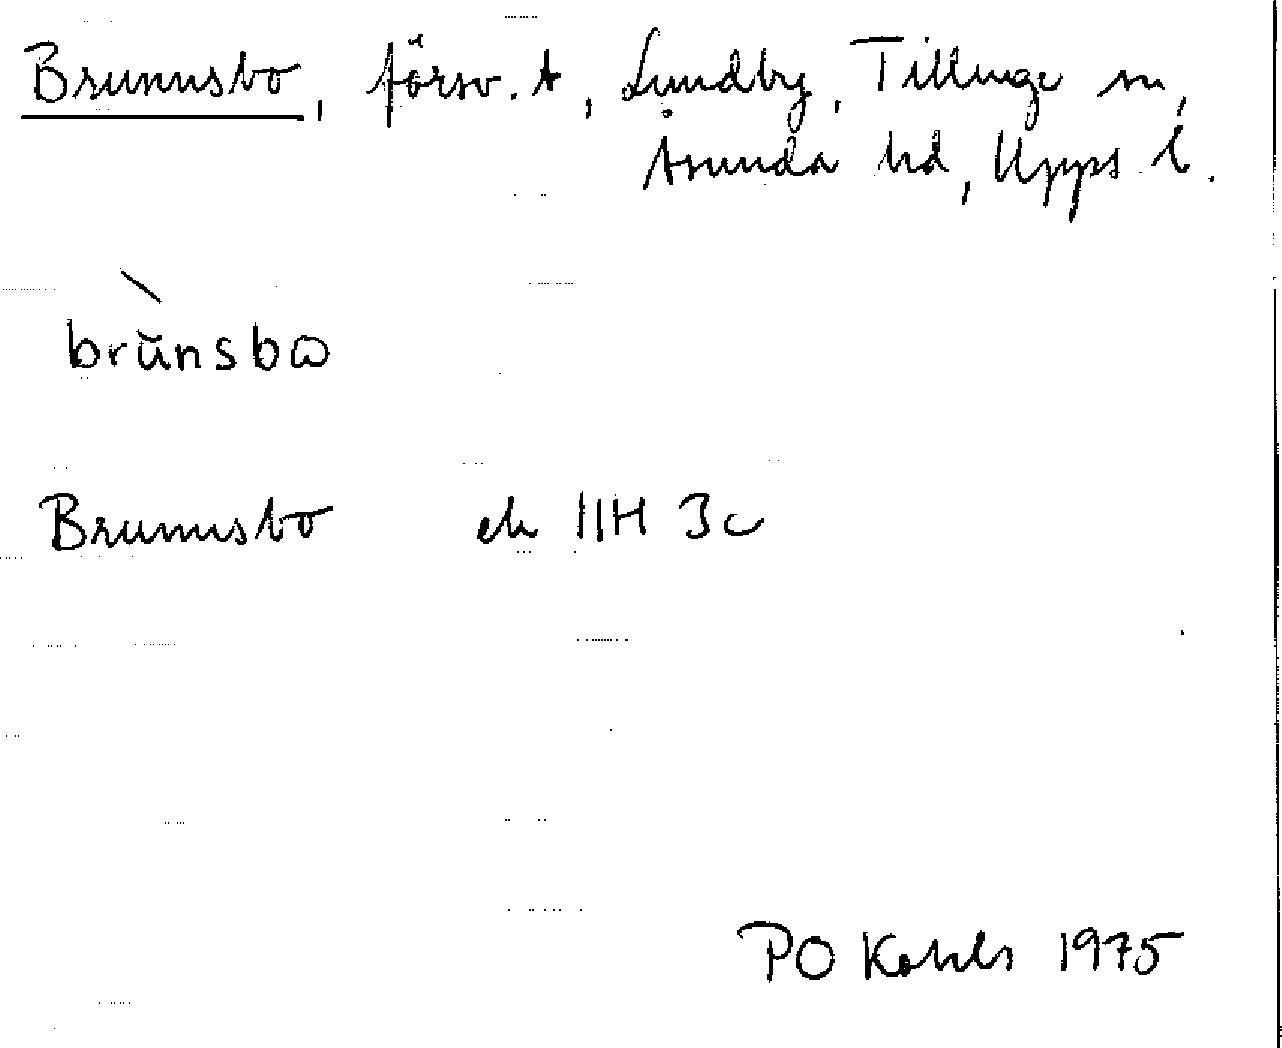 Brunnsbo, försv. t, Lundby, Tillinge sn,
Åsunda hd, Upps l.
brŭnsbω
Brunnsbo ek 11H 3c
PO 1975